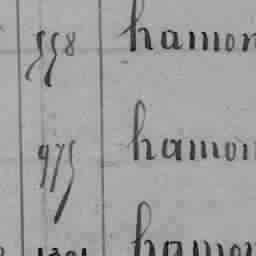 558 hamon
975 hamon
hamon